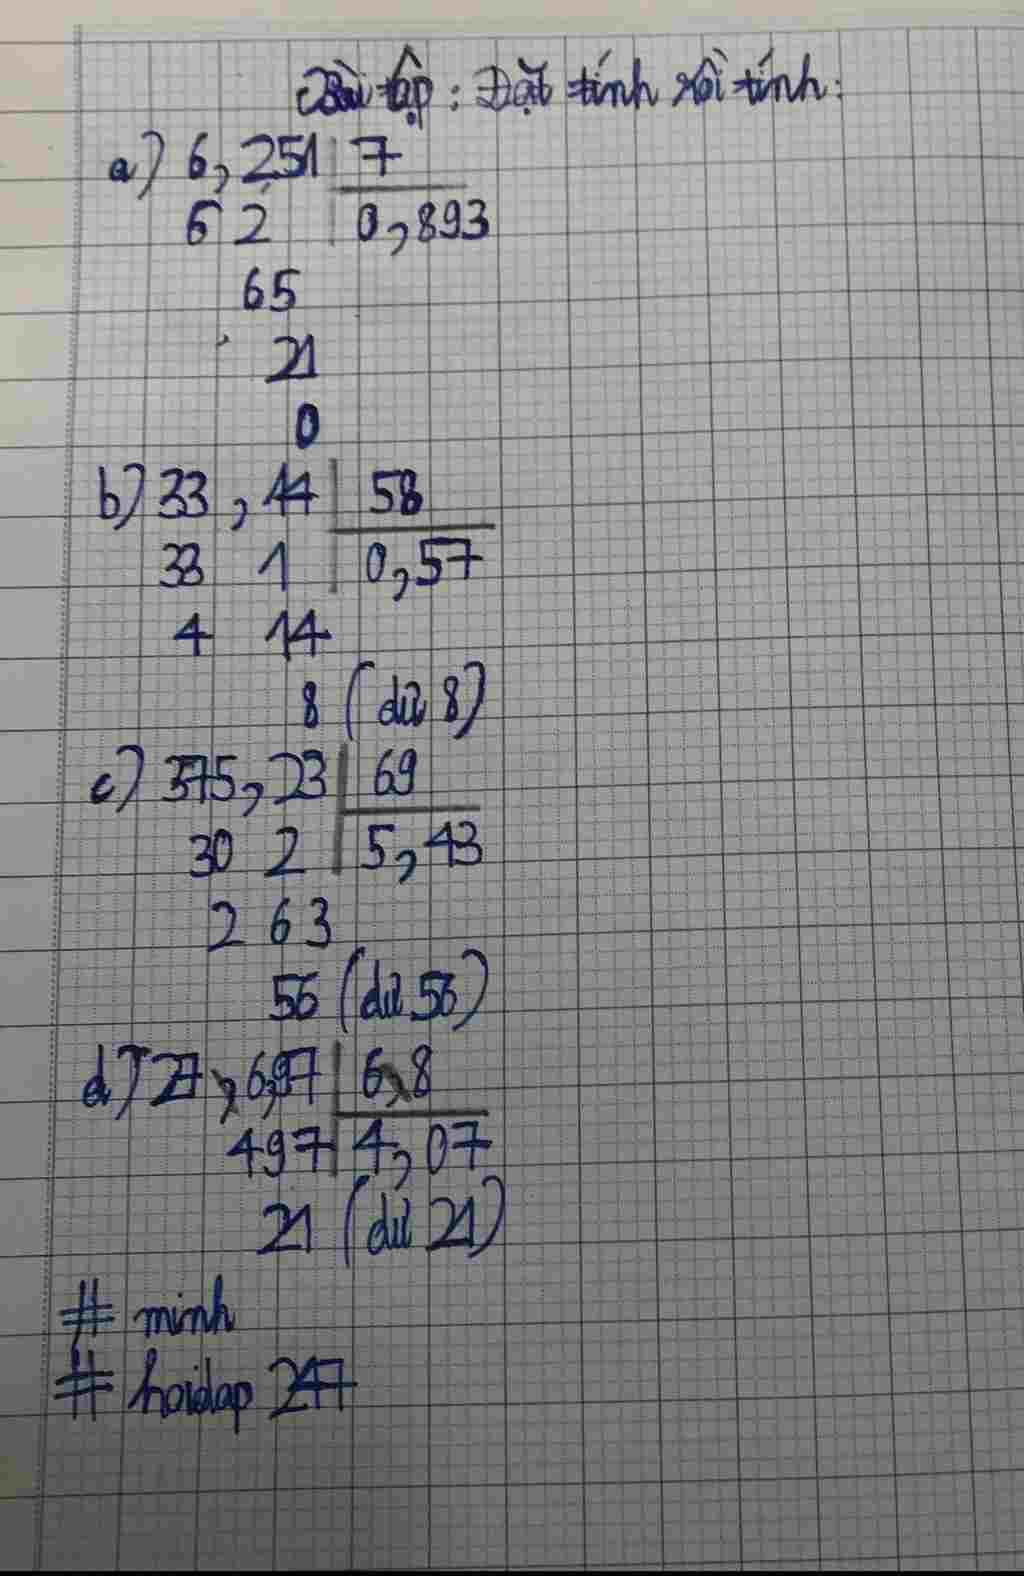 Bài tập : Đặt tính rồi tính:
a) 6,251 7
6 2 0,893
65
21
0
b) 33,14 58
33 1 0,57
4 14
8 (dư 8)
c) 375,23 69
30 2 5,43
2 63
56 (dư 56)
d) 27,6,97 6,8
497 4,07
21 (dư 21)
# minh
# hoidap 247